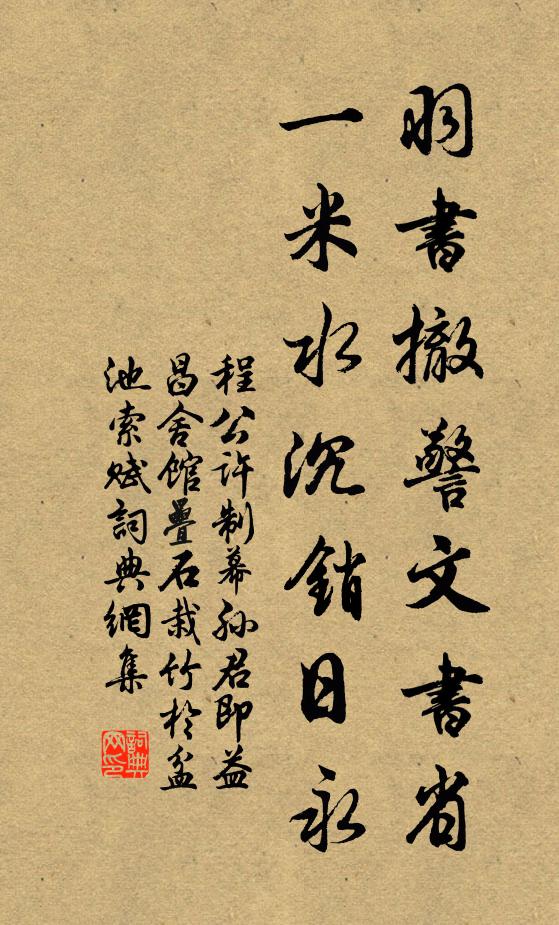 羽書撤警文書省
一米水沉銷日永
程公許制幕孙君即益
昌舍館疊石栽竹於盆
池索賦詞典網集
詞典網印